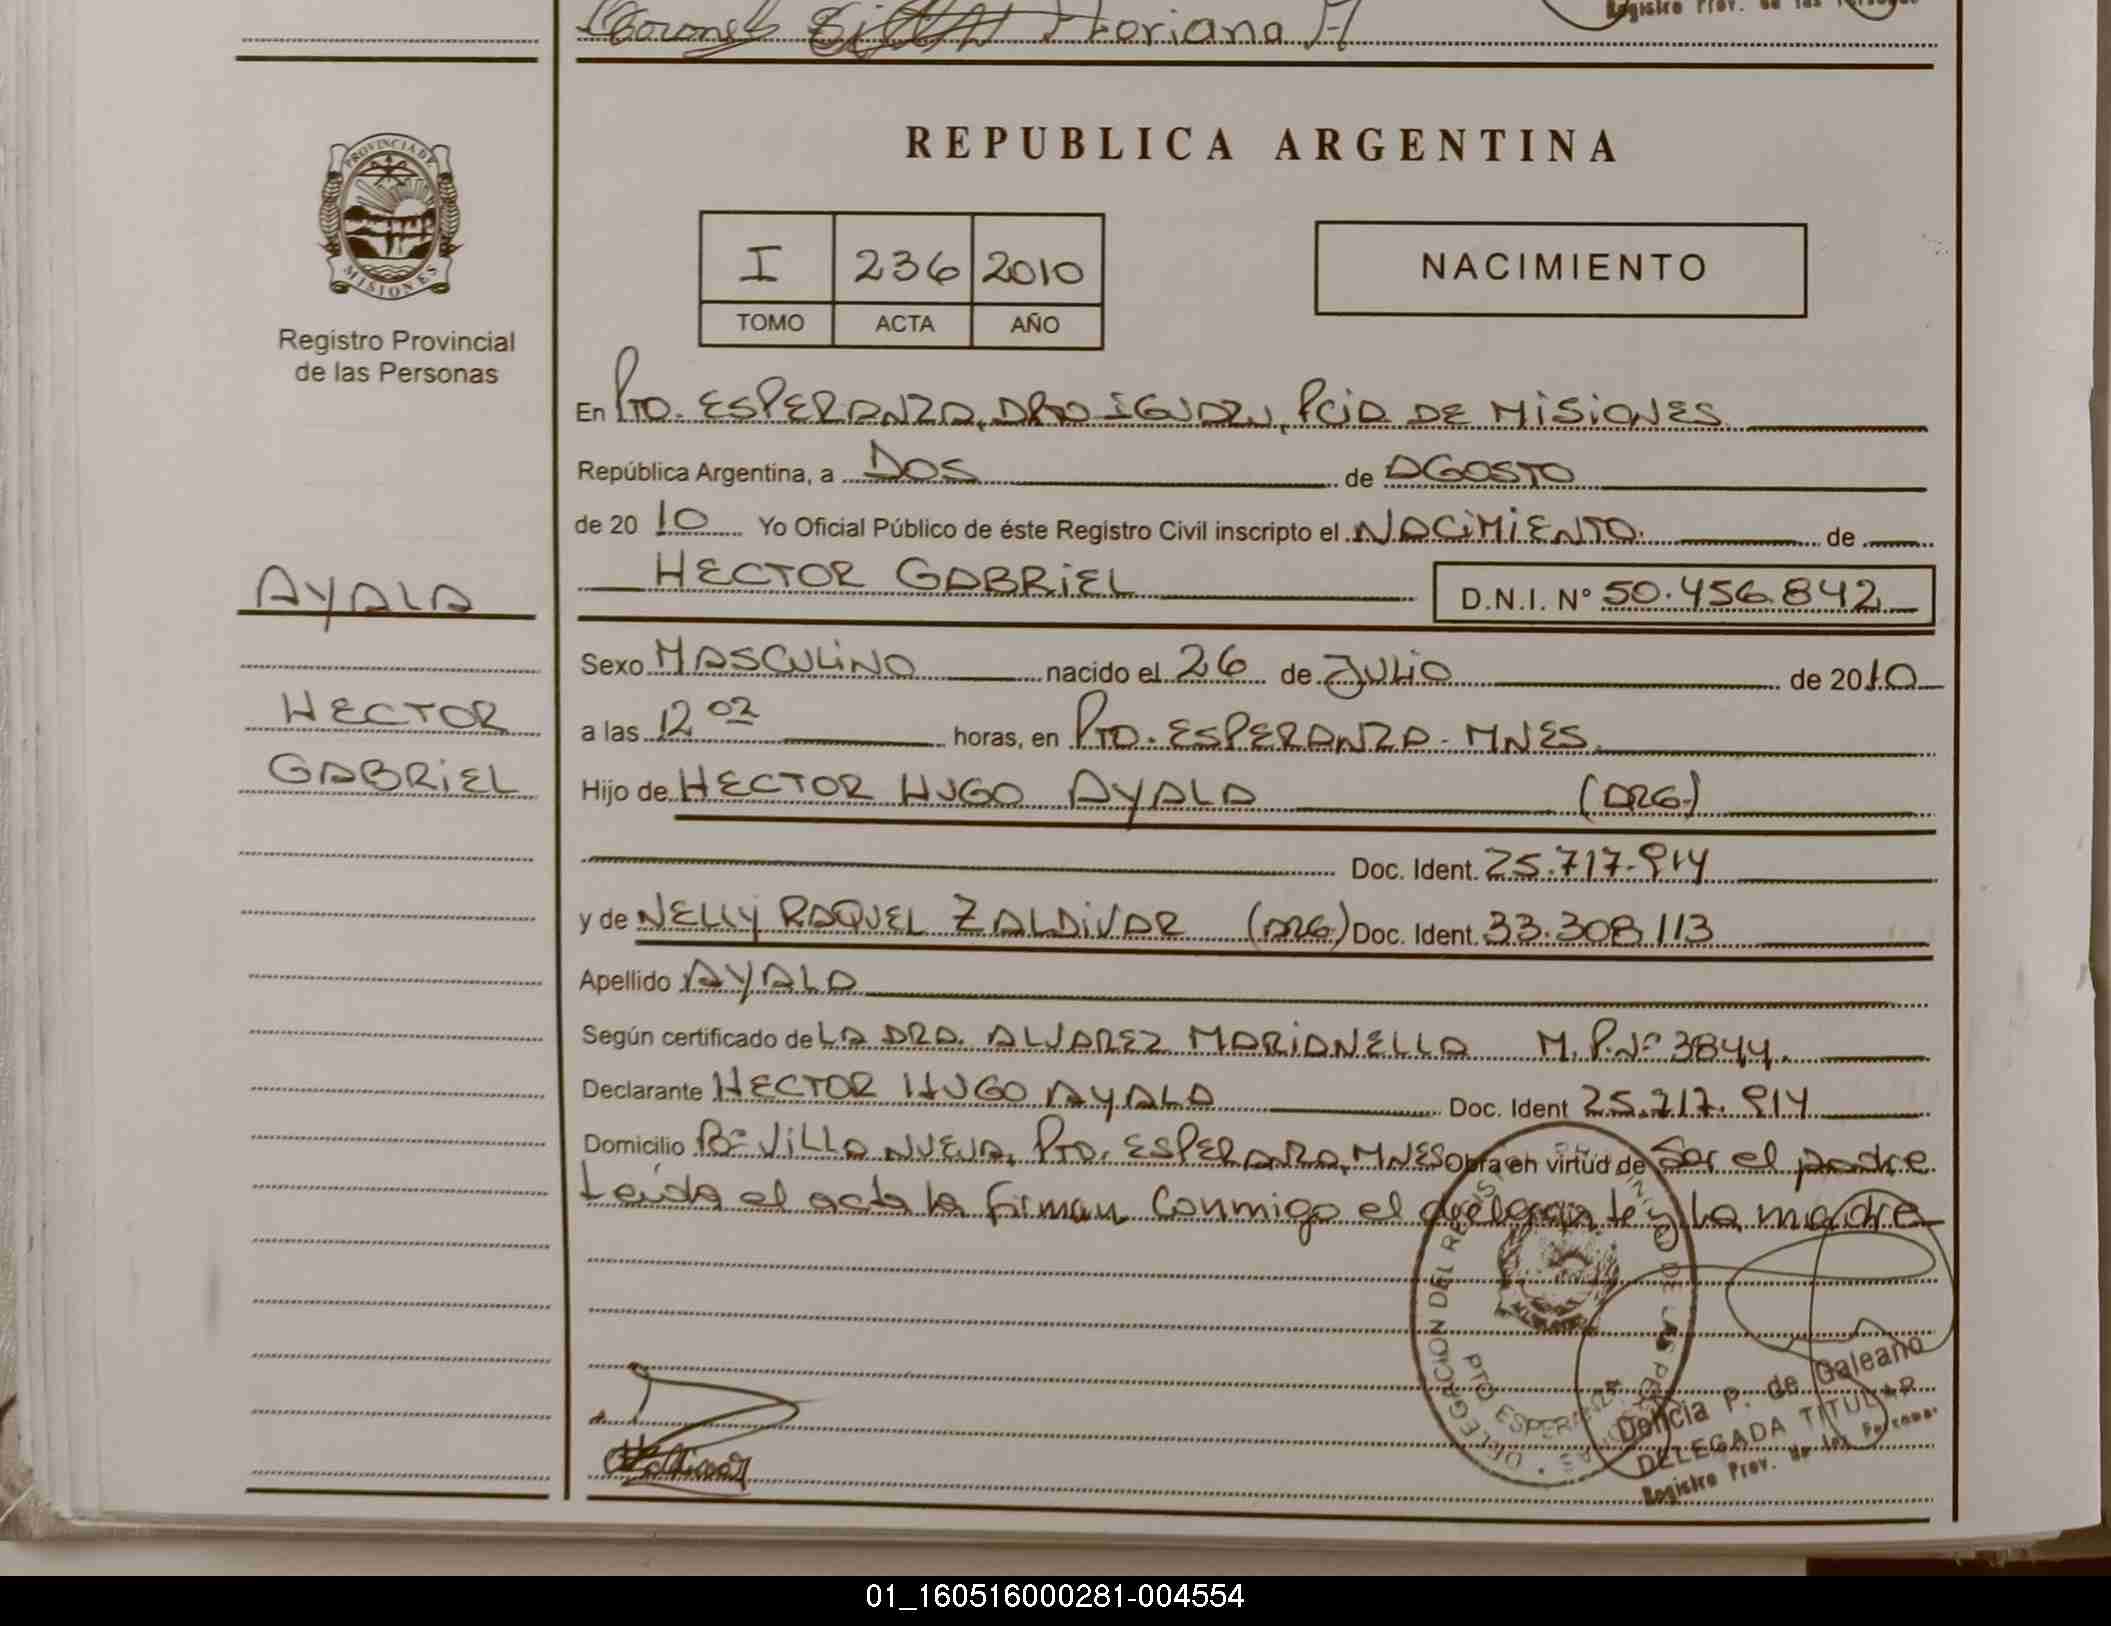 Coronel Adriana A
Registro Prov. de las Personas
REPUBLICA ARGENTINA
PROVINCIA DE
MISIONES
Registro Provincial
de las Personas
I 236 2010
TOMO ACTA AÑO
NACIMIENTO
En Pto. ESPERANZA, DPTO IGUAZU, PCIA DE MISIONES
República Argentina, a DOS de AGOSTO
de 20 10 Yo Oficial Público de éste Registro Civil inscripto el NACIMIENTO. de
HECTOR GABRIEL D.N.I. N° 50.456.842
AYALA
Sexo MASCULINO nacido el 26 de JULIO de 20 10
HECTOR
a las 12 02 horas, en Pto. ESPERANZA - MNES.
GABRIEL
Hijo de HECTOR HUGO AYALA (ARG.)
Doc. Ident. 25.717.914
y de NELLY RAQUEL ZALDIVAR (ARG) Doc. Ident. 33.308.113
Apellido AYALA
Según certificado de LA DRA. ALVAREZ MARIANELLA M.P.N° 3844.
Declarante HECTOR HUGO AYALA Doc. Ident 25.717.914
Domicilio B° VILLA NUEVA, Pto. ESPERANZA, MNES Obra en virtud de Ser el padre
Leida el acta la firman Conmigo el declarante y la madre
DELEGACION DEL REGISTRO PROVINCIAL DE LAS PERSONAS
PTO ESPERANZA
Delicia P. de Galeano
DELEGADA TITULAR
Registro Prov. de las Personas
Zaldivar
01_160516000281-004554